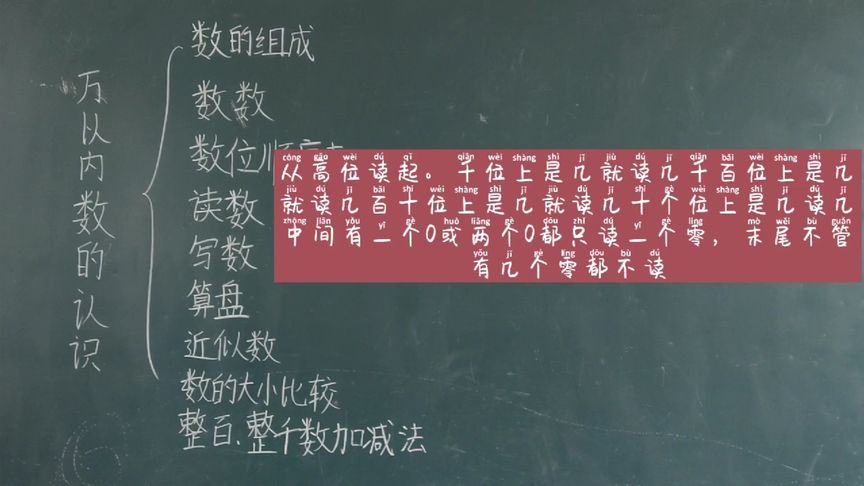 万以内数的认识
数的组成
数数
数位顺
读数
写数
算盘
近似数
数的大小比较
整百、整千数加减法
cóng gāo wèi dú qǐ qiān wèi shàng shì jǐ jiù dú jǐ qiān bǎi wèi shàng shì jǐ
从高位读起。千位上是几就读几千百位上是几
jiù dú jǐ bǎi shí wèi shàng shì jǐ jiù dú jǐ shí gè wèi shàng shì jǐ dú jǐ
就读几百十位上是几就读几十个位上是几读几
zhōng jiān yǒu yī gè huò liǎng gè dōu zhǐ dú yī gè líng mò wěi bù guǎn
中间有一个0或两个0都只读一个零，末尾不管
yǒu jǐ gè líng dōu bù dú
有几个零都不读